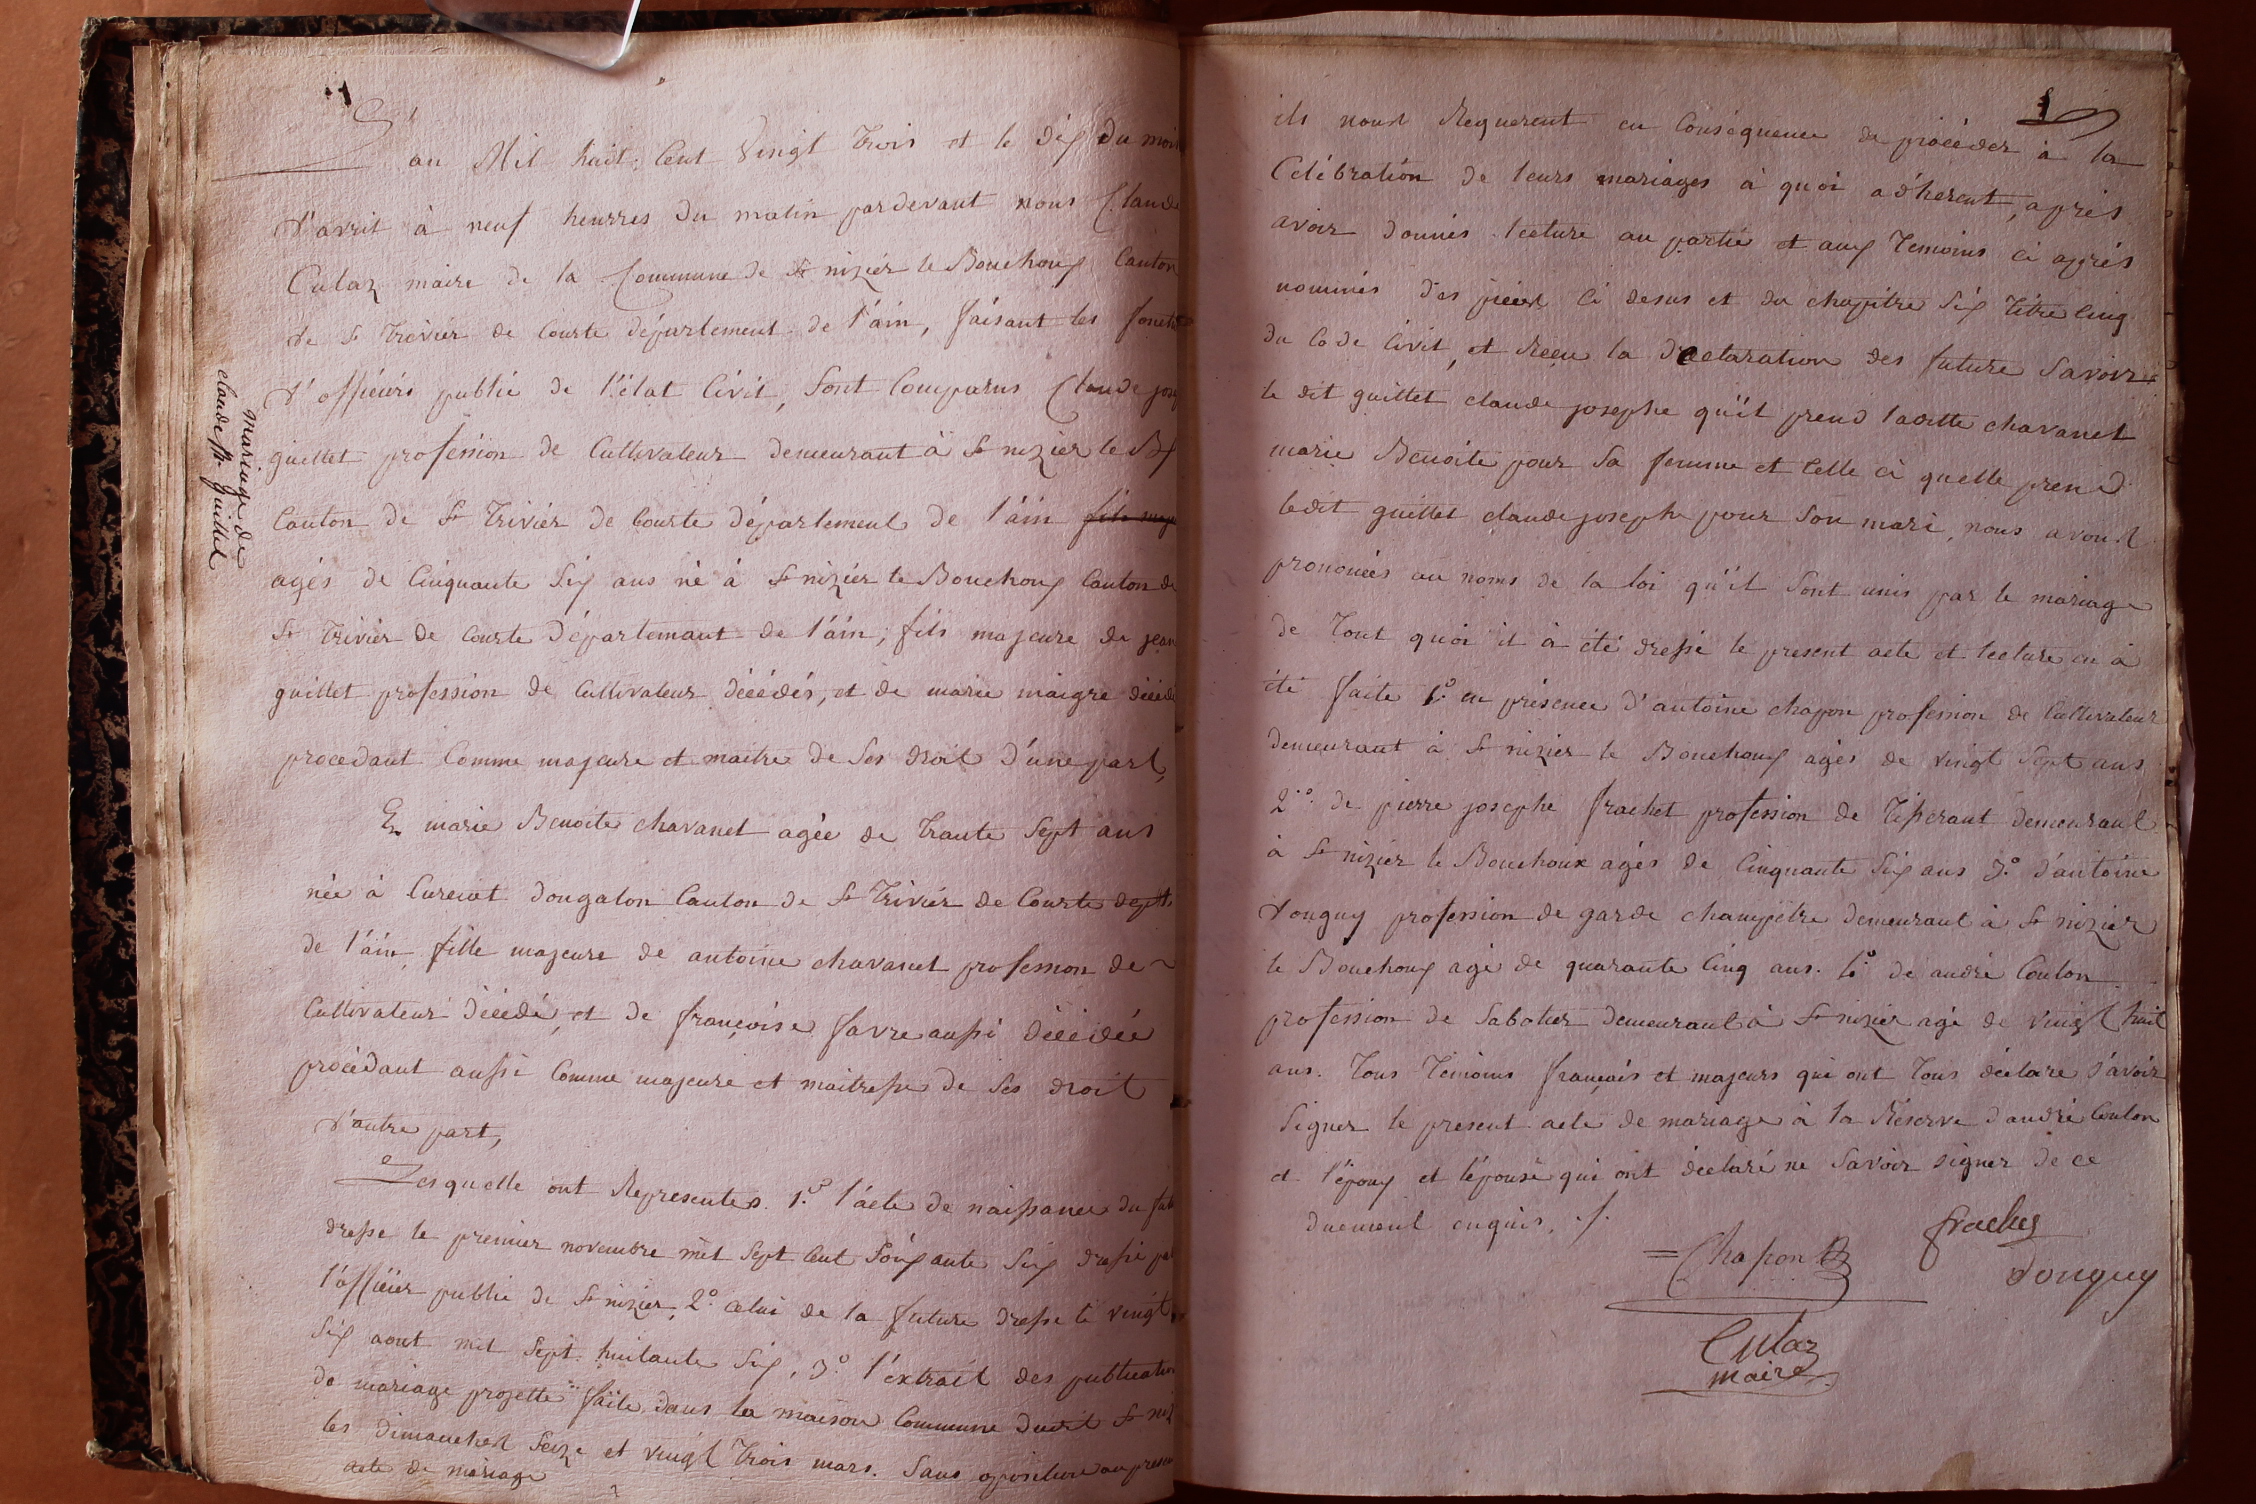 mariage de
claude jh guillet
L'an Mil huit Cent Vingt Trois et le dix du mois
d'avril à neuf heurres du matin pardevant nous Claude
Culaz maire de la Commune de St nizier le Bouchoux Canton
de St Trivier de Courte département de l'ain, faisant les fonct
d'officiers public de l'état Civil, Sont Comparus Claude jose
guillet profession de Cultivateur demeurant à St nizier le Bx
Canton de St Trivier de Courte département de l'ain fils maje
agés de Cinquante Six ans né à St nizier le Bouchoux Canton de
St Trivier de Courte départemant de l'ain, fils majeure de jean
guillet profession de Cultivateur décédés, et de marie maigre décéd
procedant Comme majeure et maitre de Ses droit d'une part,
Et marie Benoite chavanet agée de Trante Sept ans
née à Curciat dongalon Canton de St Trivier de Courte dept
de l'ain, fille majeure de antoine chavanet profession de
Cultivateur décédé, et de françoise favre aussi décédée
procédant aussi Comme majeure et maitresse de Ses droit
d'autre part,
Lesquelle ont Representés 1.º l'acte de naissance du fut
dresse le premier novembre mil Sept Cent Soixante Six dressé pa
l'officier public de St nizier, 2º celui de la future dresse le vingt
Six aout mil Sept huitante Six, 3º l'extrait des publication
de mariage projetté faite dans la maison Commune dudit St niz
les dimanches Seize et vingt Trois mars. Sans opositure au presen
acte de mariage
ils nous Requerent en Conséquence de procéder à la
Célébration de leurs mariages à quoi adherent, après
avoir donnés lecture au partie et aux Temoins ci après
nommés des pieces Ci desus et du chapitre Six Titre Cinq
du Code Civil, et Reçu la declaration des future Savoir
le dit guillet claude josephe qu'il prend laditte chavanet
marie Benoite pour Sa femme et Celle ci quelle prend
ledit guillet claude josephe pour Son mari, nous avons
prononcés au noms de la loi qu'il Sont unis par le mariage
de Tout quoi il à été dressé le present acte et lecture en à
été faite 1º en présence d'antoine chapon profession de Cultivateur
demeurant à St nizier le Bouchoux agés de vingt Sept ans
2º de pierre josephe frachet profession de Tisserant demeurant
à St nizier le Bouchoux agés de Cinquante Six ans 3º d'antoine
donguy profession de garde champêtre demeurant à St nizier
le Bouchoux agé de quarante Cinq ans. 4º de andré Coulon
profession de Sabotier demeurant à St nizier agé de vingt huit
ans. Tous Témoins français et majeurs qui ont Tous déclaré S'avoir
Signer le present acte de mariage à la Réserve d'andré Coulon
et l'époux et l'épouse qui ont déclaré ne Savoir signer de ce
duement enquis. /.
Chapon
frachey
donguy
Culaz
maire